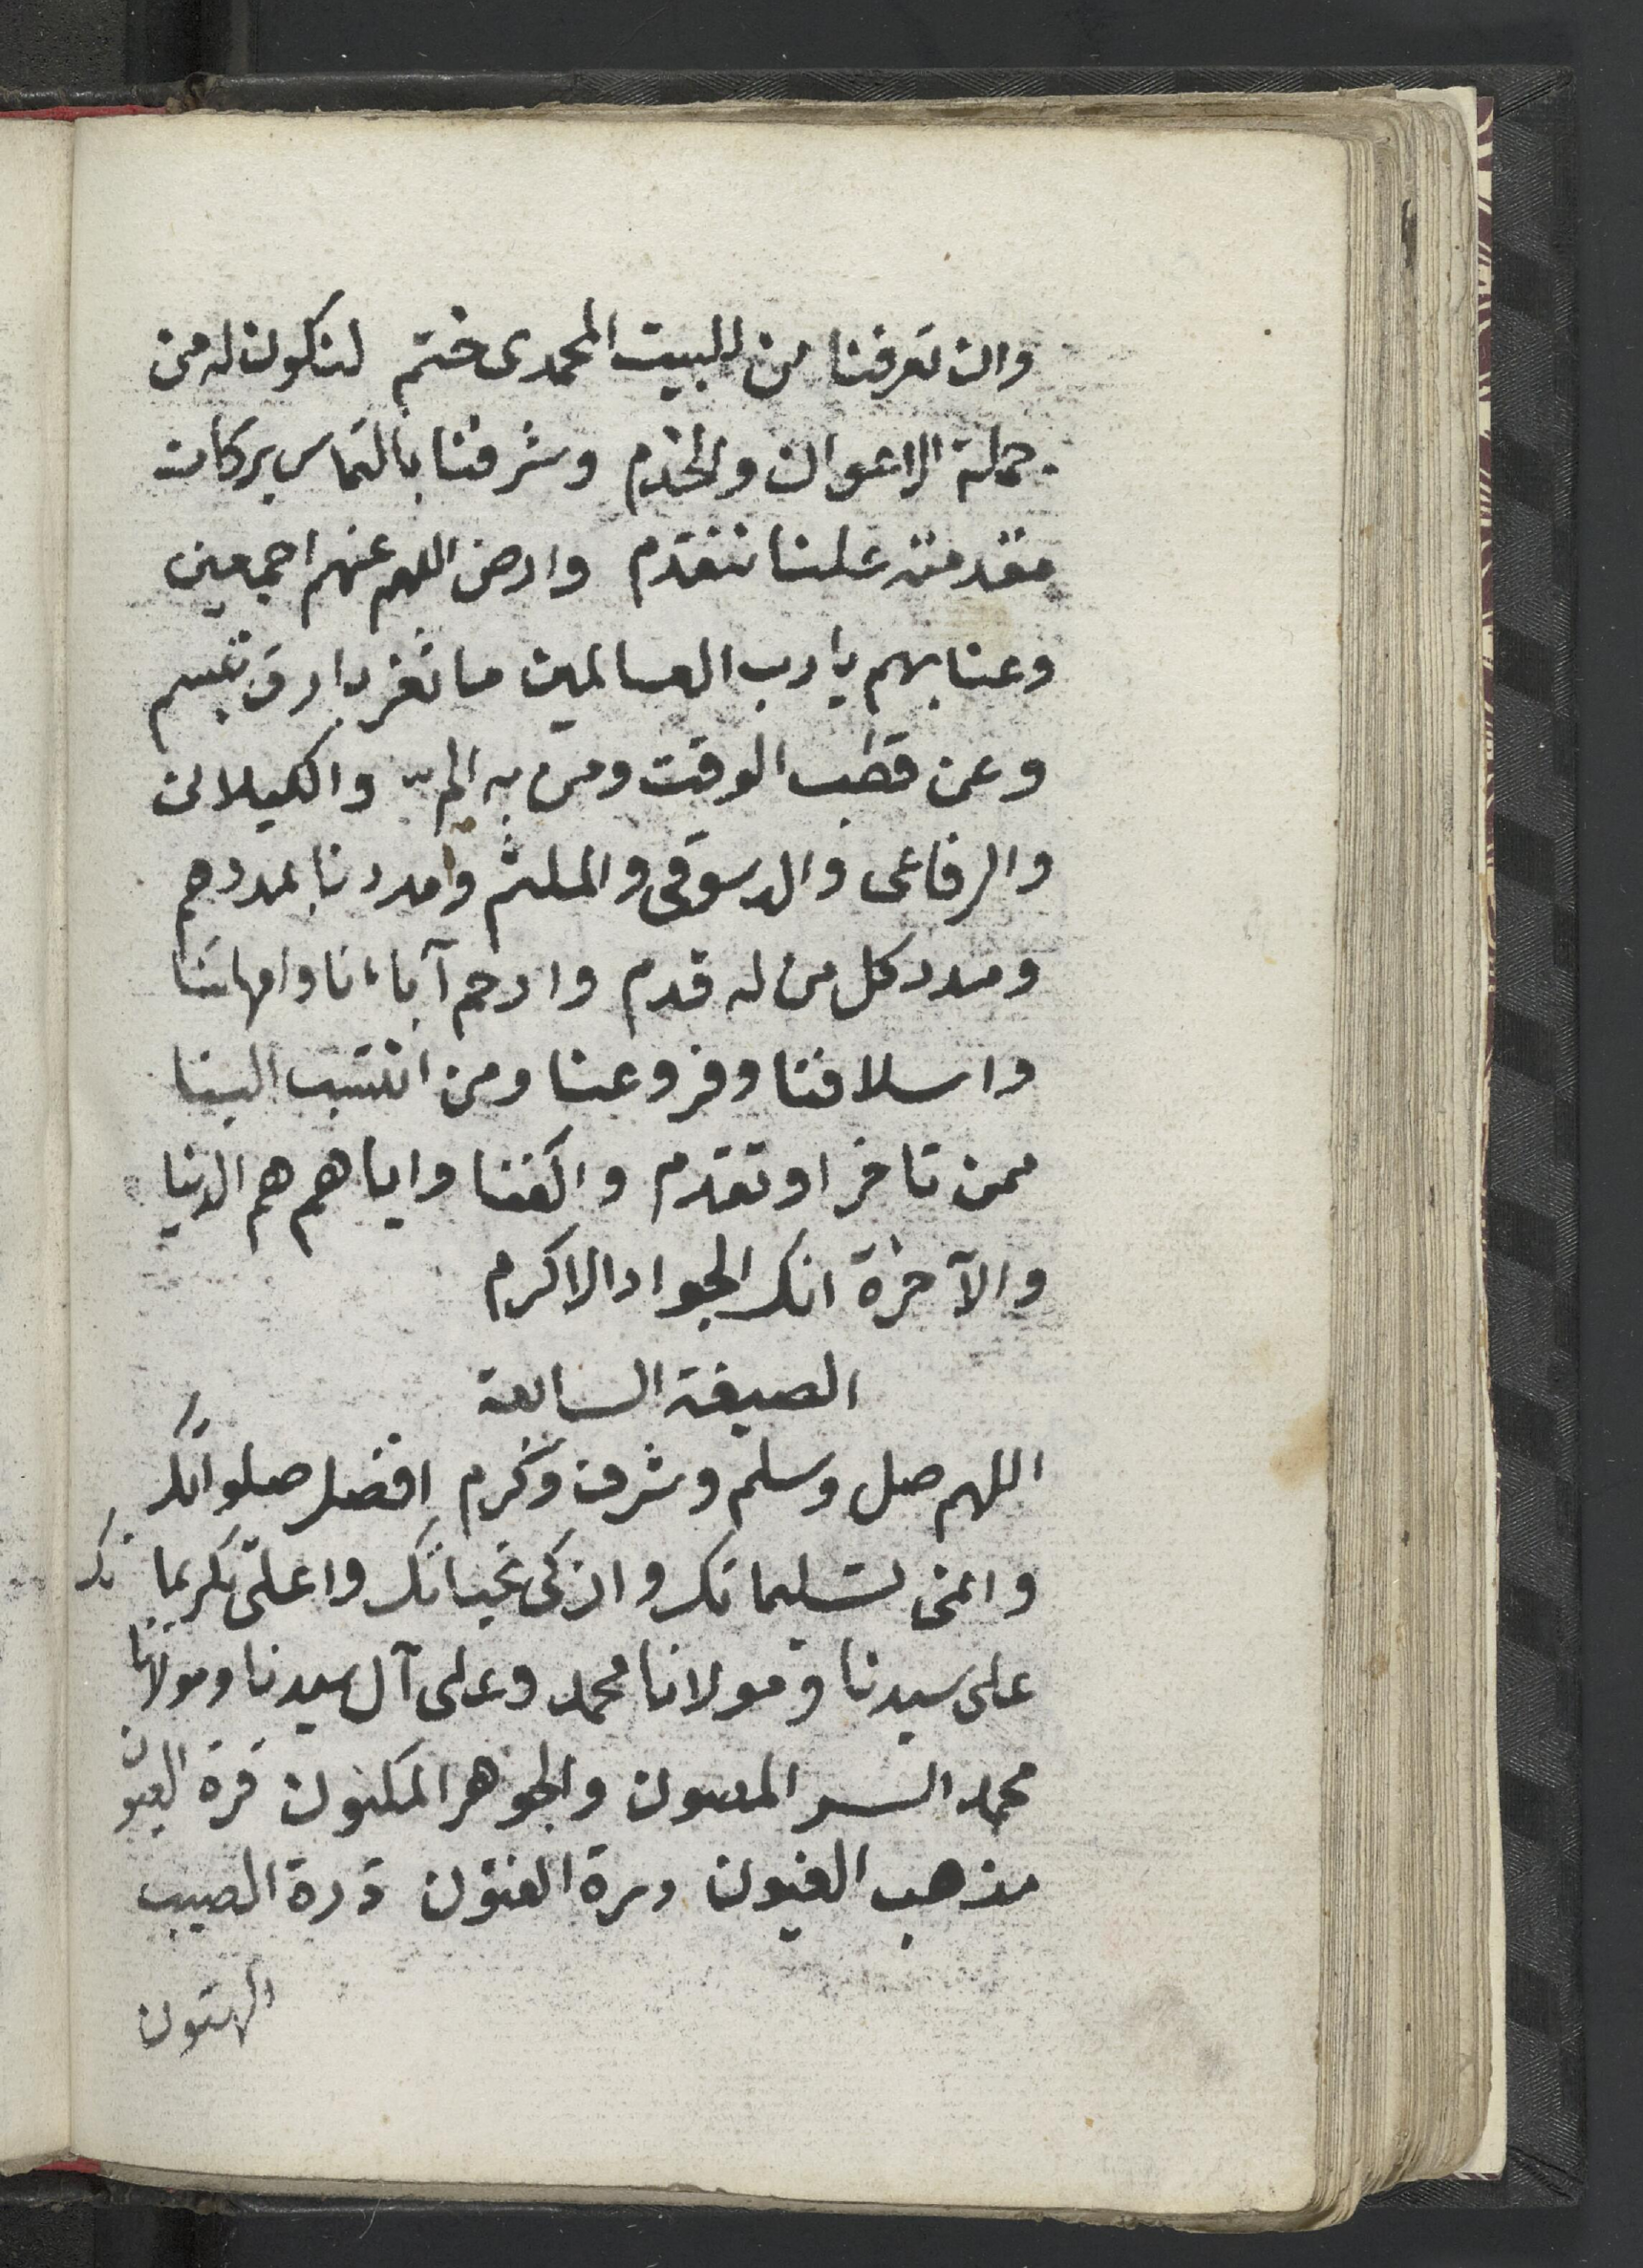 وان تعرفنا من للبيت المحمدى ختم لنكون له من
جملة الاعوان والخدم وشرفنا بالتماس بركات
مقدمته علنا نتقدم وارض اللهم عنهم اجمعين
وعنا بهم يا رب العالمين ما ثغر بارق تبسم
وعن قطب الوقت ومن به الم والكيلانى
والرفاعى والدسوقى والملثم وامددنا بمددهم
ومدد كل من له قدم وارحم آباءنا وامهاتنا
واسلافنا وفروعنا ومن انتسب الينا
ممن تاخر او تقدم واكفنا واياهم هم الدنيا
والآخرة انك الجواد الاكرم
الصيغة السابعة
اللهم صل وسلم وشرف وكرم افضل صلواتك
وانمى تسليماتك وازكى تحياتك واعلى تكريماتك
على سيدنا ومولانا محمد وعلى آل سيدنا ومولانا
محمد السر المصون والجوهر المكنون قرة العيون
مذهب الغيون درة الفنون درة الصيب
الهتون